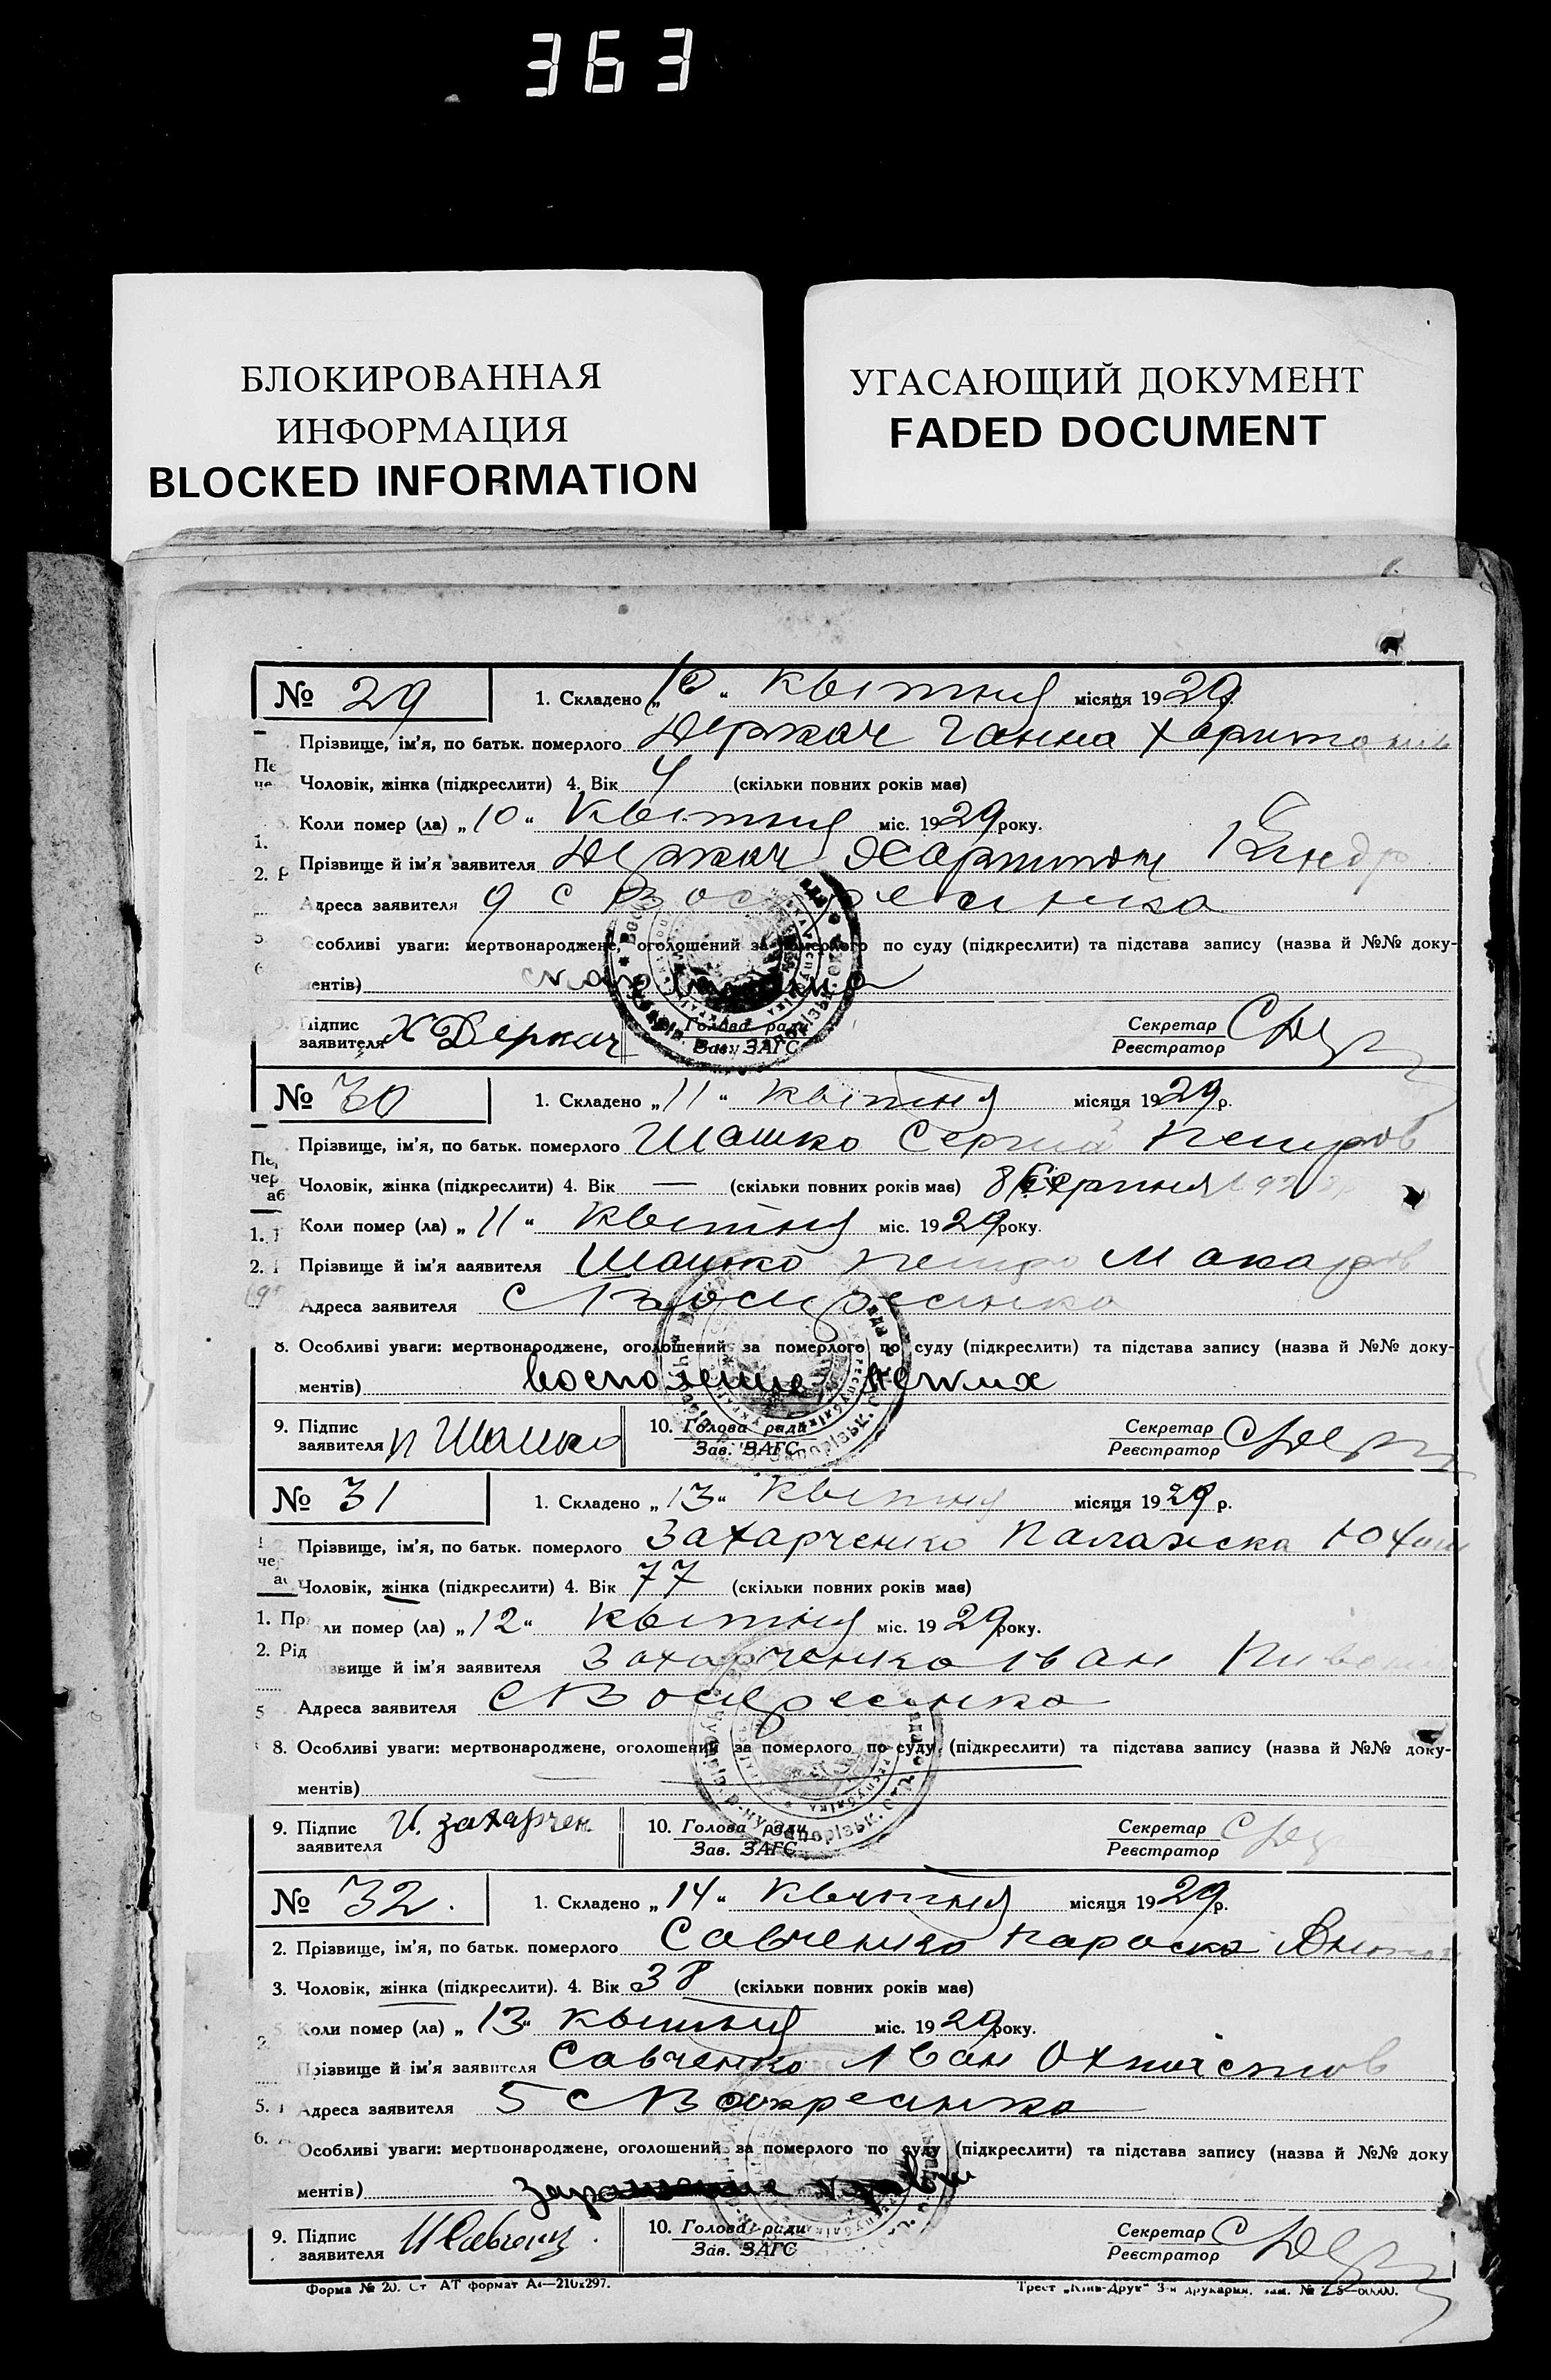 363
БЛОКИРОВАННАЯ
ИНФОРМАЦИЯ
BLOCKED INFORMATION
УГАСАЮЩИЙ ДОКУМЕНТ
FADED DOCUMENT
№ 29 1. Складено „10“ Квітня місяця 1929 р.
Прізвище, ім'я, по батьк. померлого Держач Ганна
Чоловік, жінка (підкреслити) 4. Вік 4 (скільки повних років має)
Коли помер (ла) „10“ Квітня міс. 1929 року.
Прізвище й ім'я заявителя
Адреса заявителя 9 с
Особливі уваги: мертвонароджене, оголошений за померлого по суду (підкреслити) та підстава запису (назва й №№ доку-
ментів)
9. Підпис заявителя Х Держач Голова ради Зав. ЗАГС Секретар Реєстратор
№ 30 1. Складено „11“ Квітня місяця 1929 р.
Прізвище, ім'я, по батьк. померлого Шашко Сергій Петров
Чоловік, жінка (підкреслити) 4. Вік — (скільки повних років має) 8 Серпня
Коли помер (ла) „11“ Квітня міс. 1929 року.
Прізвище й ім'я заявителя Шашко Петро Макаров
Адреса заявителя с Воскресенка
8. Особливі уваги: мертвонароджене, оголошений за померлого по суду (підкреслити) та підстава запису (назва й №№ доку-
ментів) воспаление легких
9. Підпис заявителя П Шашко 10. Голова ради Зав. ЗАГС Секретар Реєстратор
№ 31 1. Складено „13“ Квітня місяця 1929 р.
Прізвище, ім'я, по батьк. померлого Захарченко Палажка Юхим
Чоловік, жінка (підкреслити) 4. Вік 77 (скільки повних років має)
Коли помер (ла) „12“ Квітня міс. 1929 року.
Прізвище й ім'я заявителя Захарченко Іван
Адреса заявителя с Воскресенка
8. Особливі уваги: мертвонароджене, оголошений за померлого по суду (підкреслити) та підстава запису (назва й №№ доку-
ментів)
9. Підпис заявителя И. Захарчен 10. Голова ради Зав. ЗАГС Секретар Реєстратор
№ 32. 1. Складено „14“ Квітня місяця 1929 р.
2. Прізвище, ім'я, по батьк. померлого Савченко Параска
3. Чоловік, жінка (підкреслити). 4. Вік 38 (скільки повних років має)
5. Коли помер (ла) „13“ Квітня міс. 1929 року.
Прізвище й ім'я заявителя Савченко Іван
Адреса заявителя 5 с Воскресенка
Особливі уваги: мертвонароджене, оголошений за померлого по суду (підкреслити) та підстава запису (назва й №№ доку
ментів) заражение крови
9. Підпис заявителя 10. Голова ради Зав. ЗАГС Секретар Реєстратор
Форма № 20.